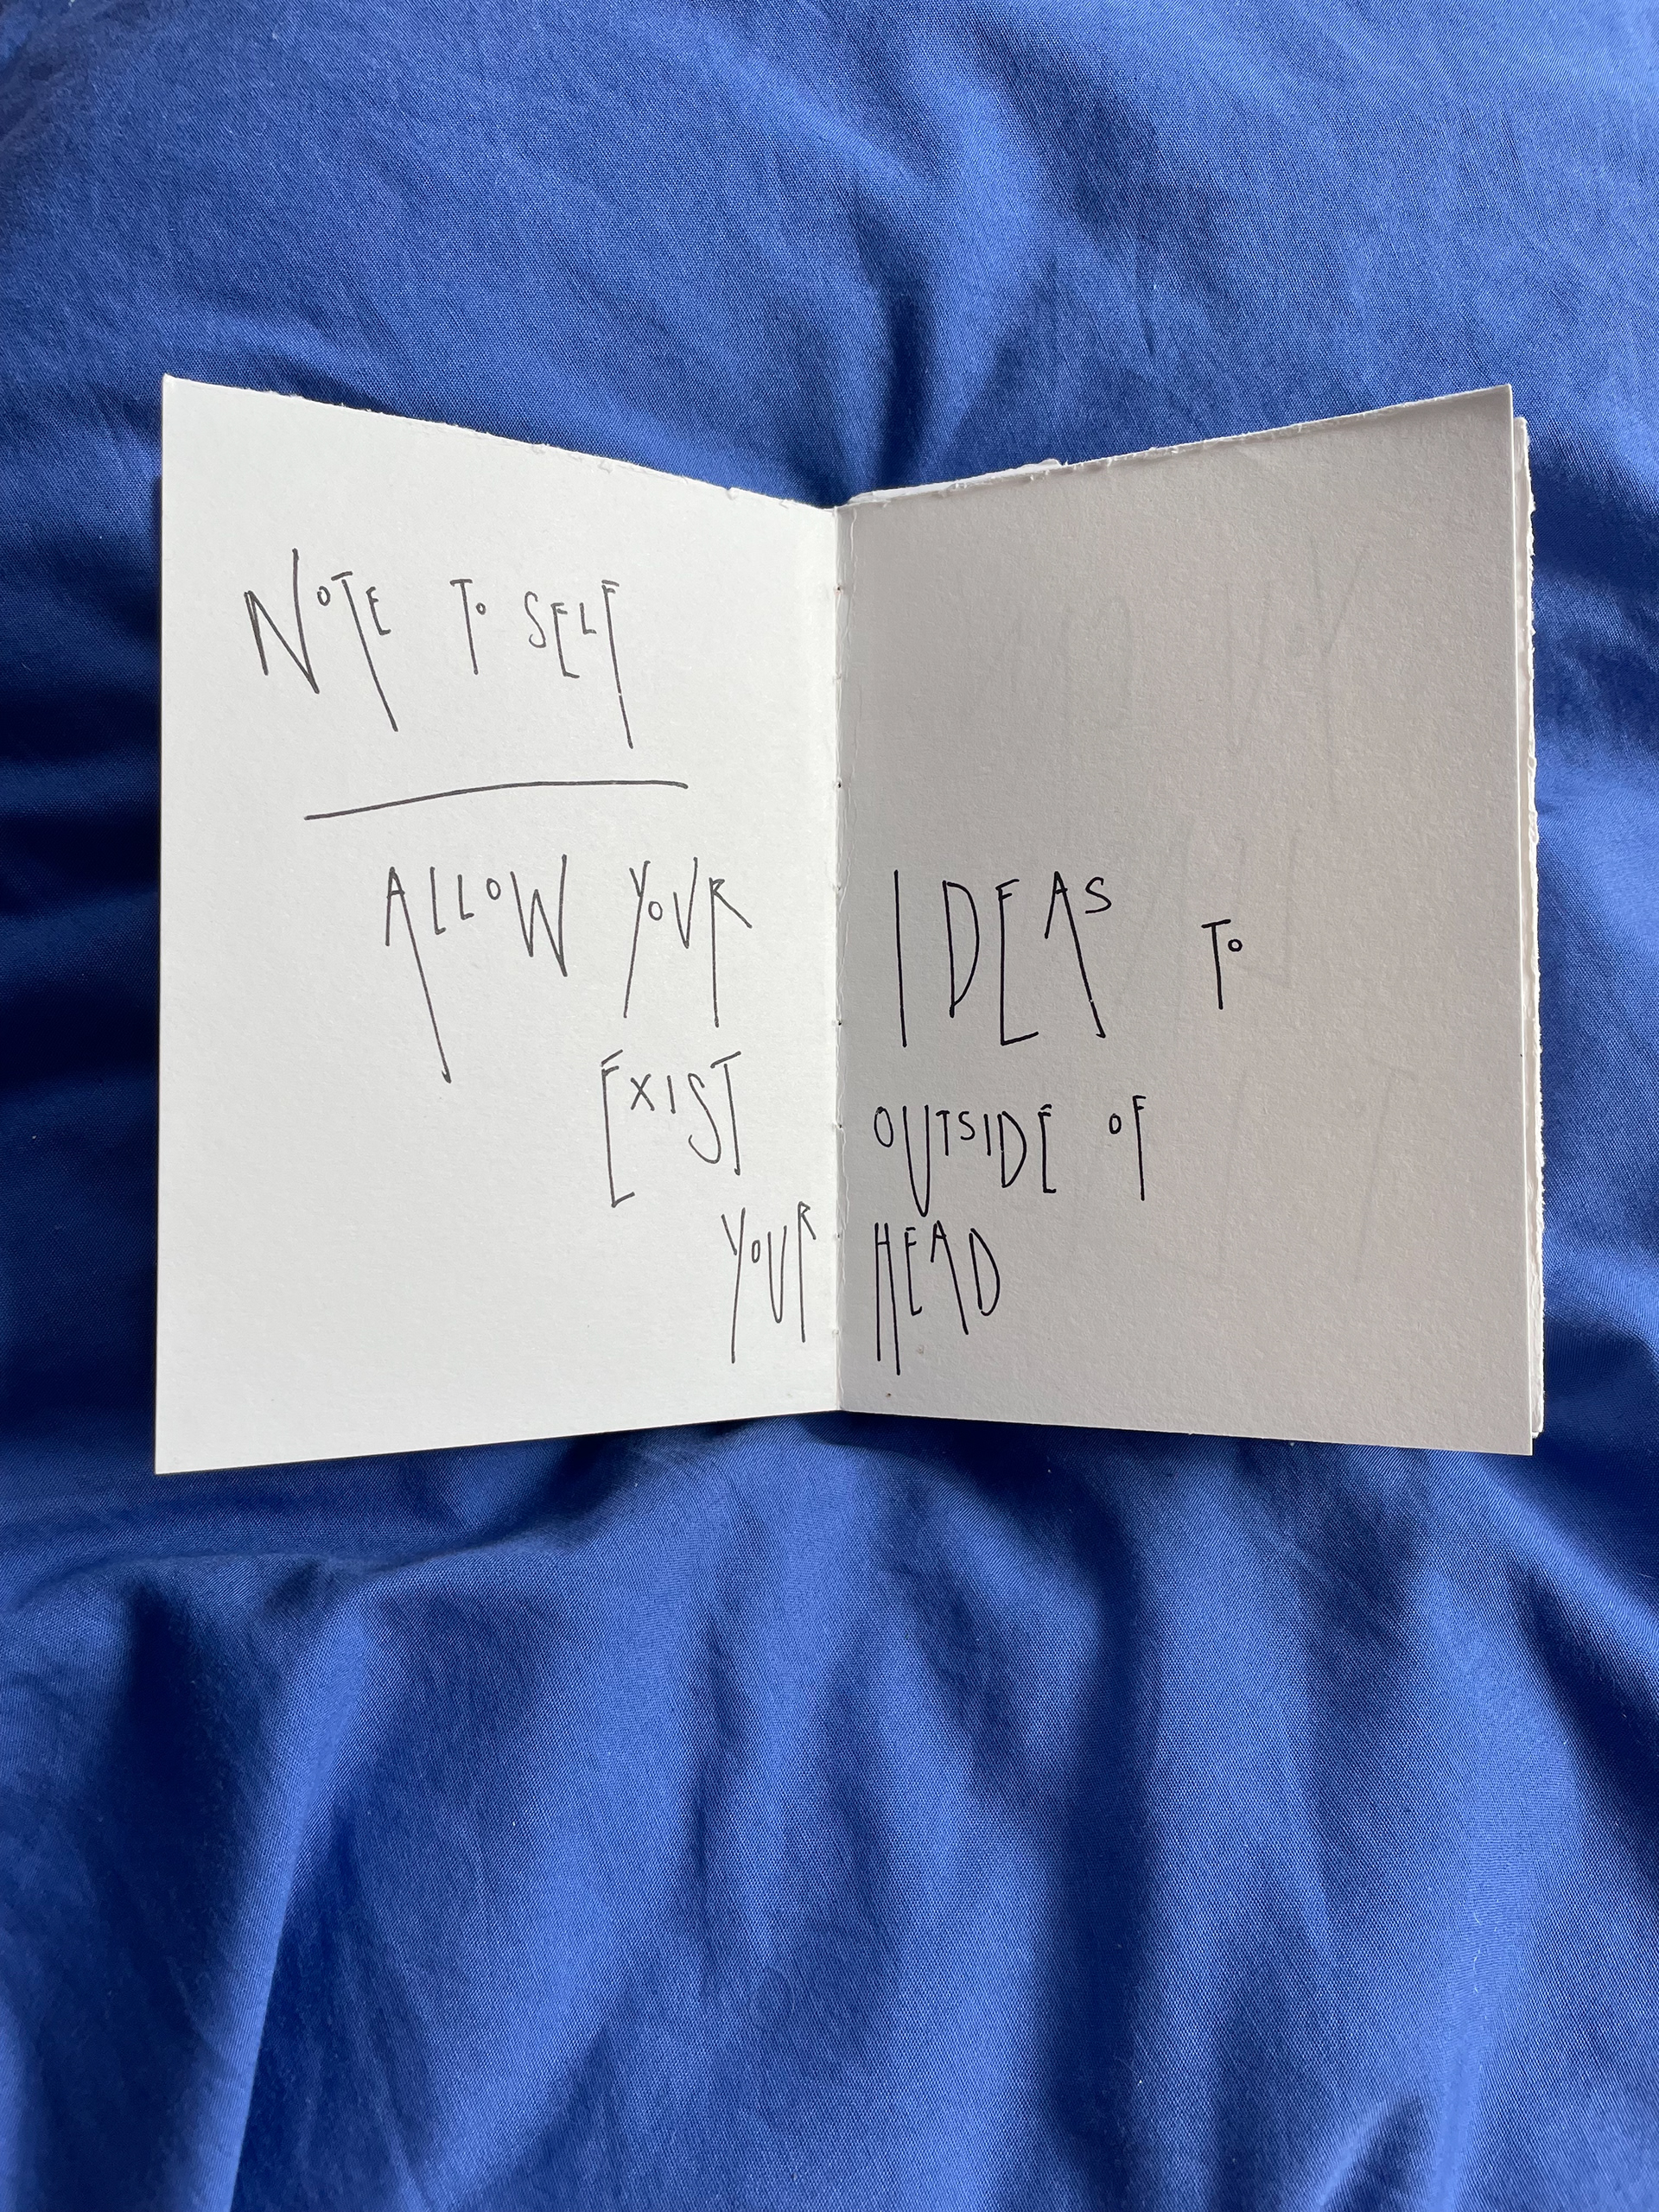 NOTE TO SELF
ALLOW YOUR IDEAS TO
EXIST OUTSIDE OF
YOUR HEAD